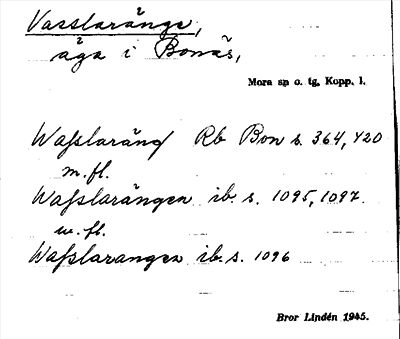 Vasslaränge,
äga i Bonäs,
Mora sn o. tg, Kopp. l.
Waſslaräng Rb Bon s. 364, 420
m. fl.
Waſslarängen ib. s. 1095, 1097
m. fl.
Waſslarangen ib. s. 1096
Bror Lindén 1945.